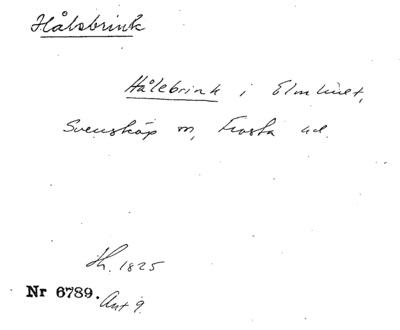 Hålsbrink
Hålebrink i Elmhult,
Svensköp sn, Frosta hd.
Th. 1825
Nr 6789. Ant 9.